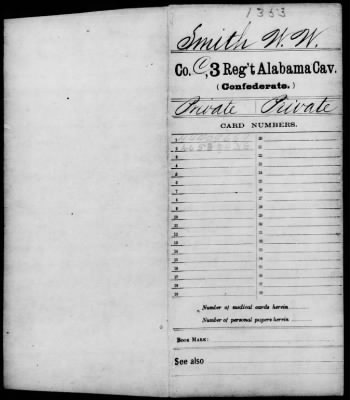 1353
Smith W. W.
Co. C, 3 Reg't Alabama Cav.
(Confederate.)
Private Private
CARD NUMBERS.
1 20
2 21
3 22
4 23
5 24
6 25
7 26
8 27
9 28
10 29
11 30
12 31
13 32
14 33
15 34
16 35
17 36
18 37
19 38
Number of medical cards herein
Number of personal papers herein
BOOK MARK:
See also